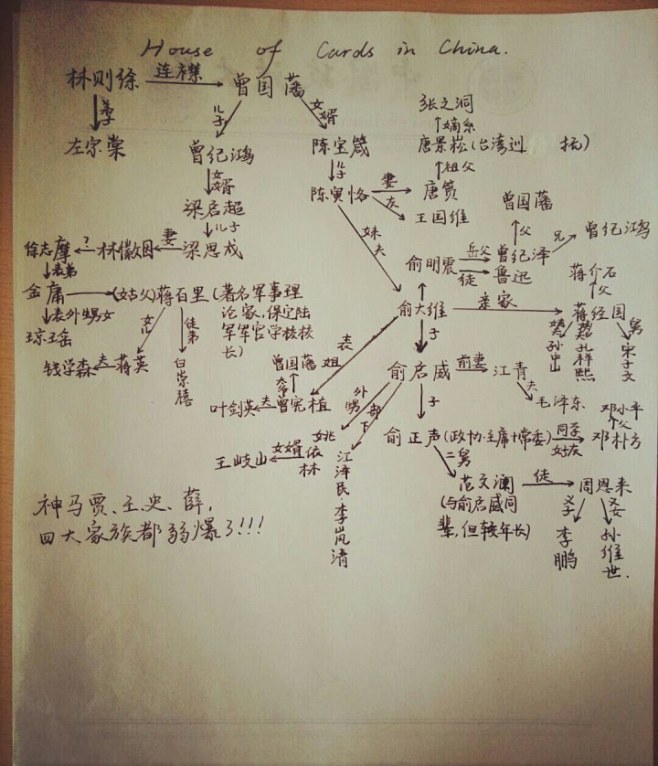 House of Cards in China.
林则徐 连襟 曾国藩
儿子 女婿
左宗棠 曾纪鸿 陈宝箴
张之洞
嫡系
唐景崧(台湾巡 抚)
女婿 儿子 祖父
梁启超 陈寅恪 妻 唐筼
友 王国维
儿子
徐志摩 ? 林徽因 妻 梁思成
妹夫
曾国藩
父
俞明震 岳父 曾纪泽 兄 曾纪鸿
徒 鲁迅
表弟
金庸 (姑父)蒋百里 (著名军事理
论家,保定陆
军军官学校校
长)
表外甥女
琼瑶
女儿 徒弟
钱学森 夫 蒋英 白崇禧
蒋介石
父
俞大维 亲家 蒋经国
孙中山 孔祥熙 舅 宋子文
子
表姐
曾国藩
叶剑英 夫 曾宪植
俞启威 前妻 江青
夫
毛泽东
外甥 部下
子
王岐山 女婿 姚依林
江泽民 李岚清
俞正声(政协主席+常委) 同学 好友 邓朴方
父
邓小平
二舅
范文澜 徒 周恩来
(与俞启威同
辈,但较年长)
义子 义女
李鹏 孙维世.
神马贾、王、史、薛,
四大家族都弱爆了!!!